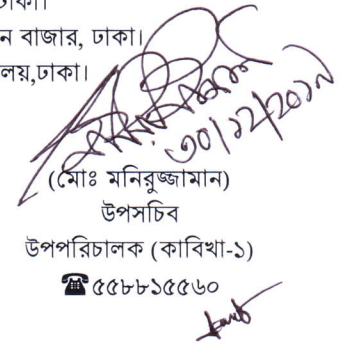 ঢাকা।
ন বাজার, ঢাকা।
লয়,ঢাকা।
৩০/১২/২০১৯
(মোঃ মনিরুজ্জামান)
উপসচিব
উপপরিচালক (কাবিখা-১)
☎৫৫৮৮১৫৫৬০